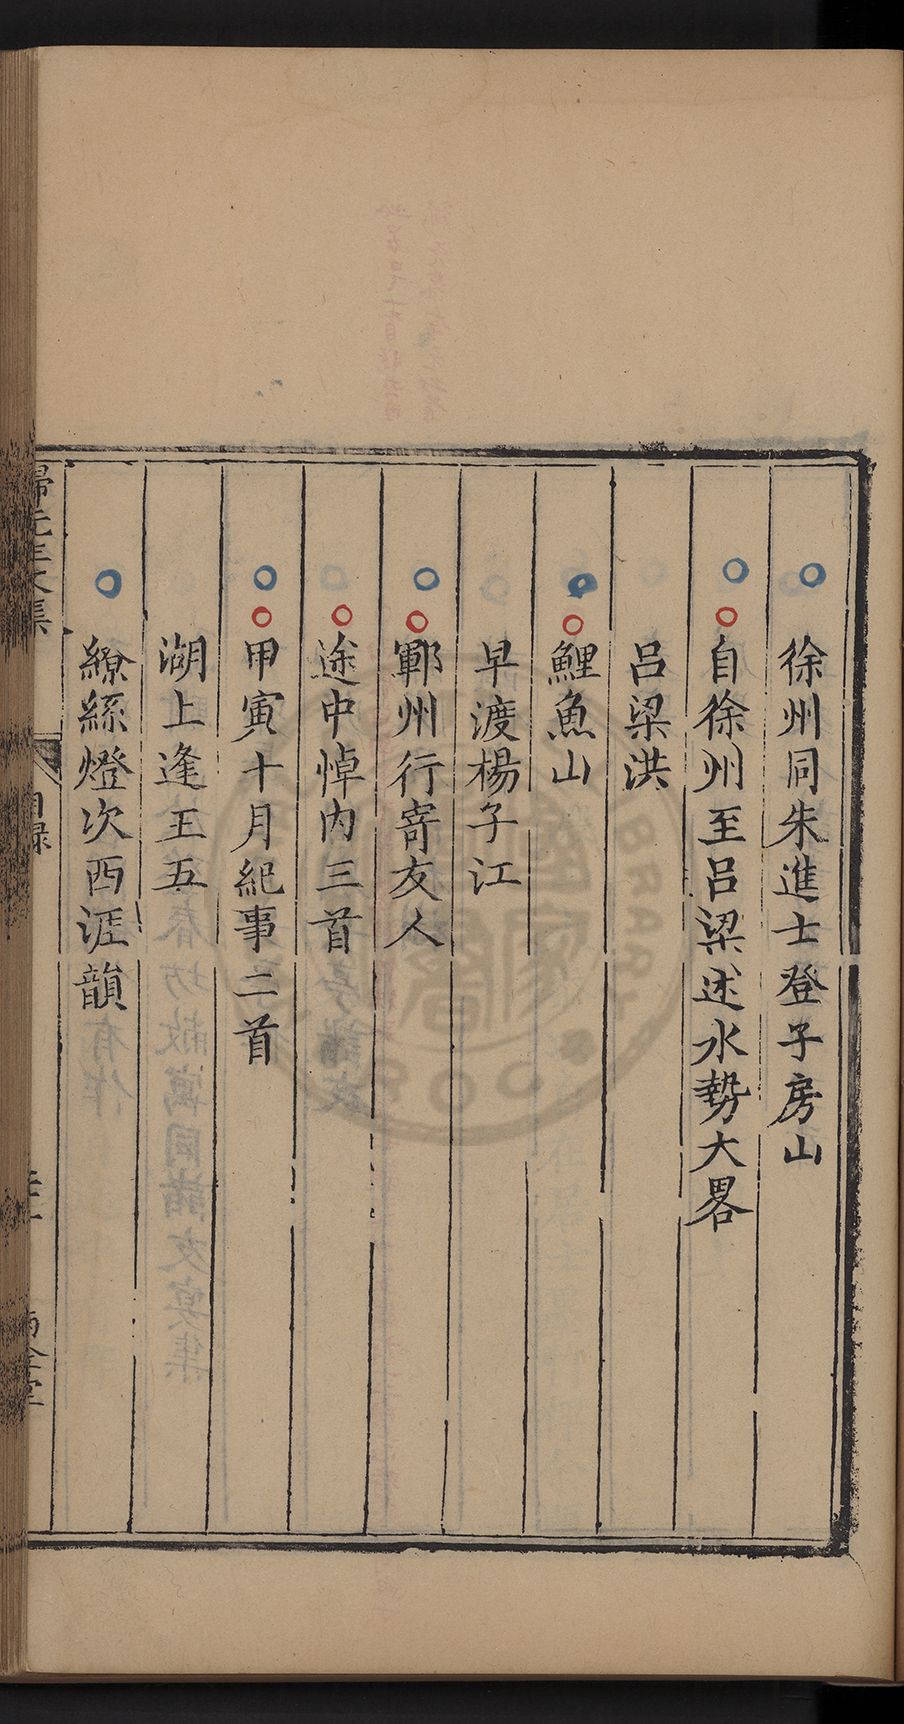 徐州同朱進士登子房山
自徐州至呂梁述水勢大畧
呂梁洪
鯉魚山
早渡楊子江
鄆州行寄友人
途中悼內三首
甲寅十月紀事二首
湖上逢王五
繚絲燈次西涯韻
目錄